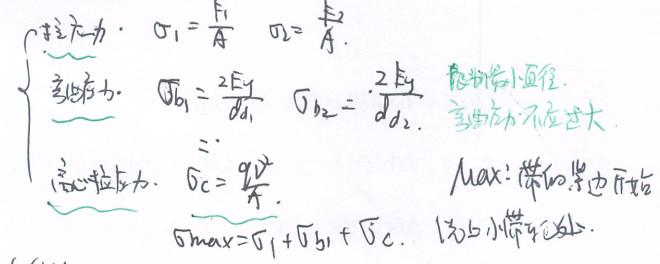 拉应力. σ₁ = F₁/A σ₂ = F₂/A.
弯曲应力. σb₁ = 2Ey/dd₁ σb₂ = 2Ey/dd₂. 限制最小直径.
弯曲应力不应过大.
离心拉应力. σc = qv²/A. Max: 带的紧边开始
σmax = σ₁ + σb₁ + σc. 绕上小带轮处.